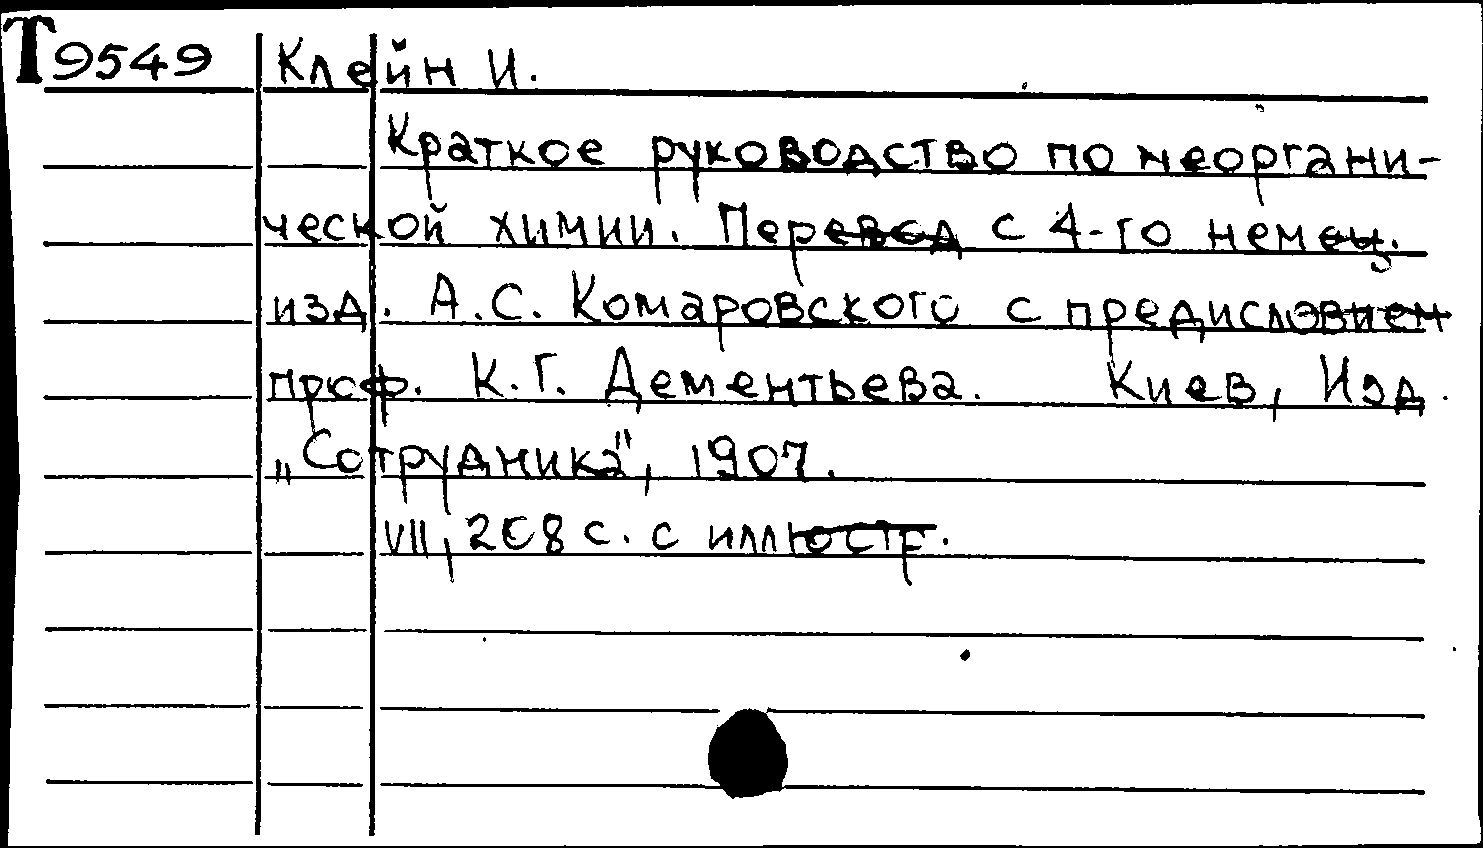 Т9549 Клейн И.
Краткое руководство по неоргани-
ческой химии. Перевод с 4-го немец.
изд. А.С. Комаровского с предисловием
проф. К.Г. Дементьева. Киев, Изд.
„Сотрудника", 1907.
VII, 208 с. с иллюстр.